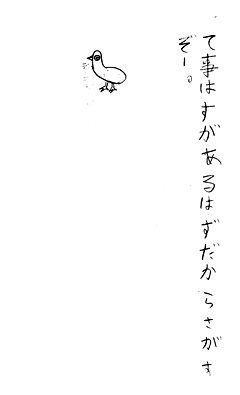 て事はすがあるはずだからさがす
ぞー。